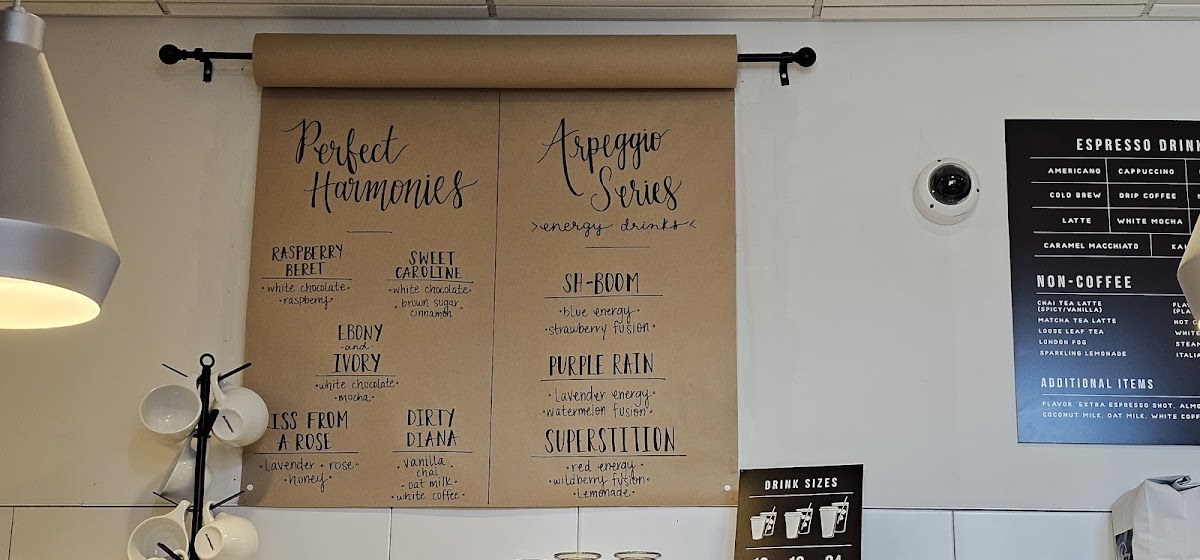 Perfect
Harmonies
RASPBERRY
BERET
• white chocolate •
• raspberry •
SWEET
CAROLINE
• white chocolate •
• brown sugar •
cinnamon
EBONY
-and-
IVORY
• white chocolate •
• mocha •
FROM
A ROSE
• lavender • rose •
• honey •
DIRTY
DIANA
• vanilla •
chai
• oat milk •
• white coffee •
Arpeggio
Series
>energy drinks<
SH-BOOM
• blue energy •
• strawberry fusion •
PURPLE RAIN
• lavender energy •
• watermelon fusion •
SUPERSTITION
• red energy •
• wildberry fusion •
• lemonade •
DRINK SIZES
ESPRESSO
AMERICANO CAPPUCCINO
COLD BREW DRIP COFFEE
LATTE WHITE MOCHA
CARAMEL MACCHIATO
NON-COFFEE
CHAI TEA LATTE
(SPICY/VANILLA)
MATCHA TEA LATTE
LOOSE LEAF TEA
LONDON FOG
SPARKLING LEMONADE
ADDITIONAL ITEMS
FLAVOR, EXTRA ESPRESSO SHOT,
COCONUT MILK, OAT MILK, WHITE